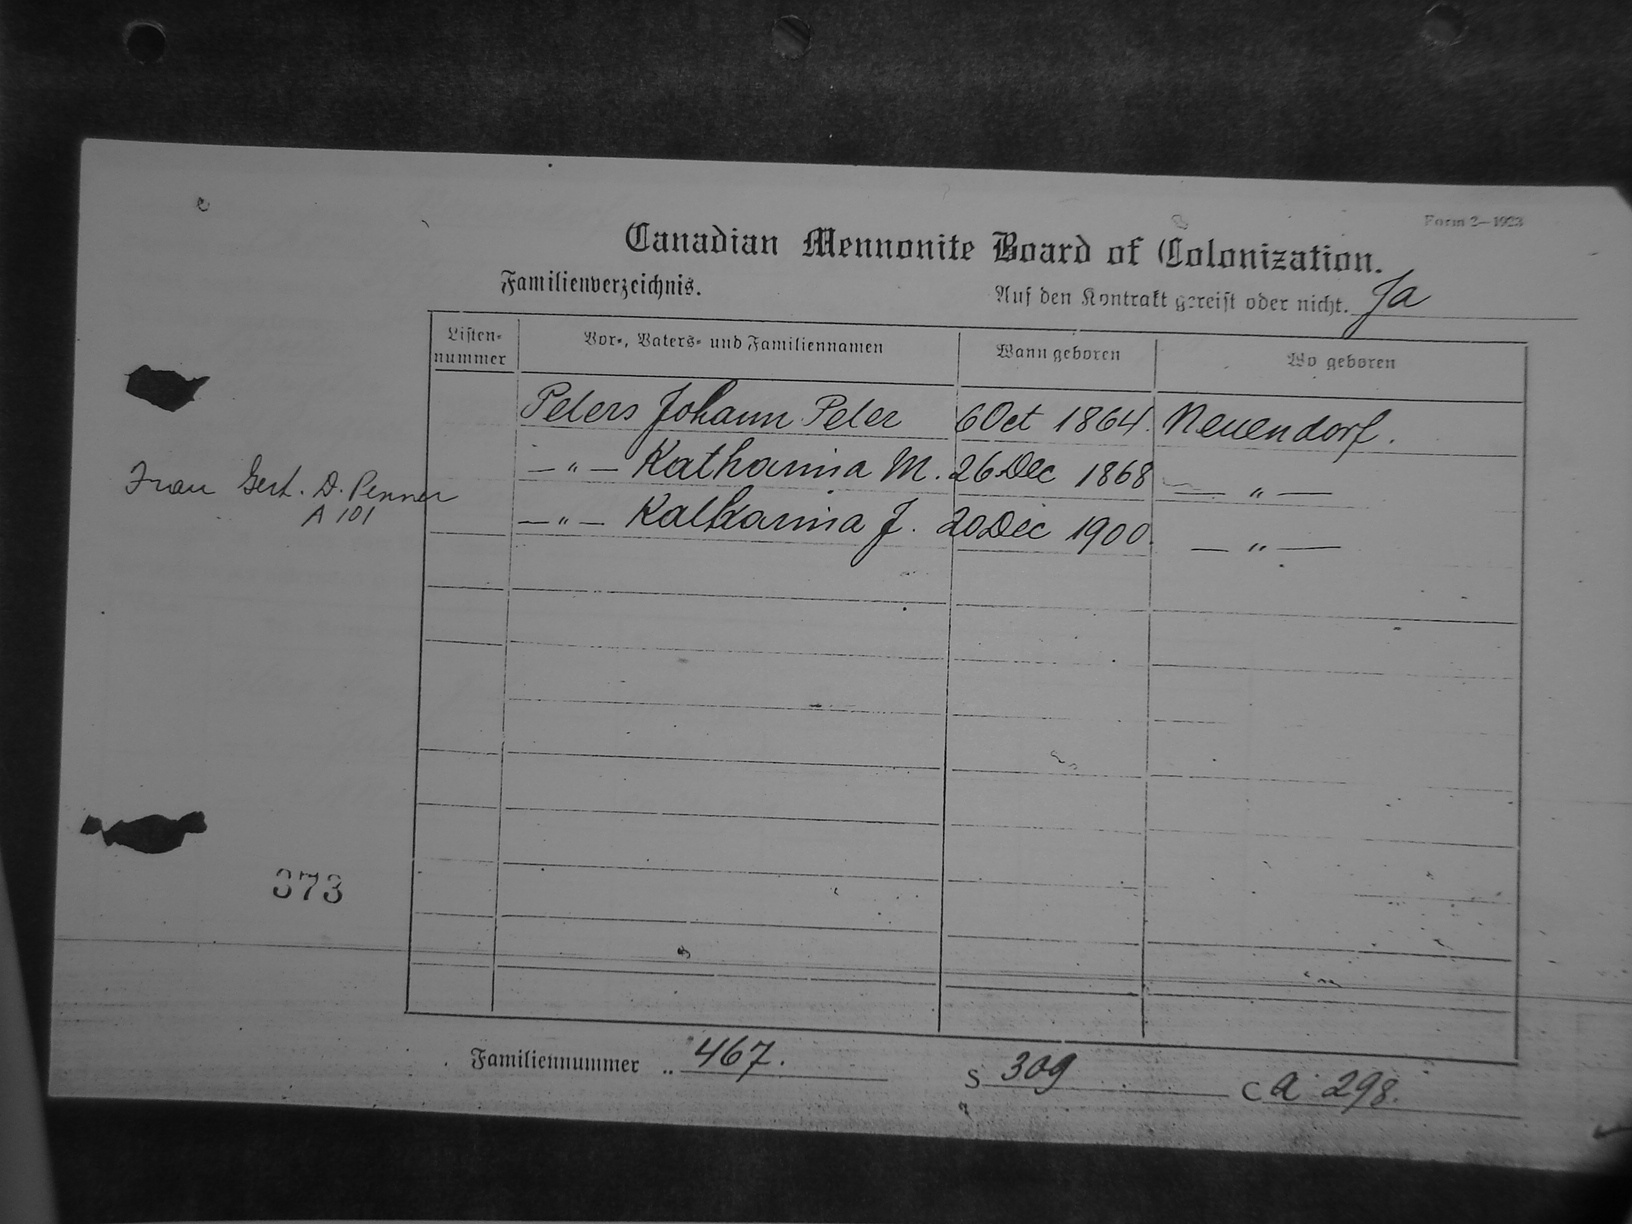 Form 2—1923
Canadian Mennonite Board of Colonization.
Familienverzeichnis.
Auf den Kontrakt gereist oder nicht. Ja
Listen-nummer Vor-, Vaters- und Familiennamen Wann geboren Wo geboren
Peters Johann Peter 6 Oct 1864. Neuendorf.
— " — Katharina M. 26 Dec 1868 — " —
Frau Gerh. D. Penner
A 101
— " — Katharina J. 20 Dec 1900. — " —
373
Familiennummer .. 467. S 309 C A 298.